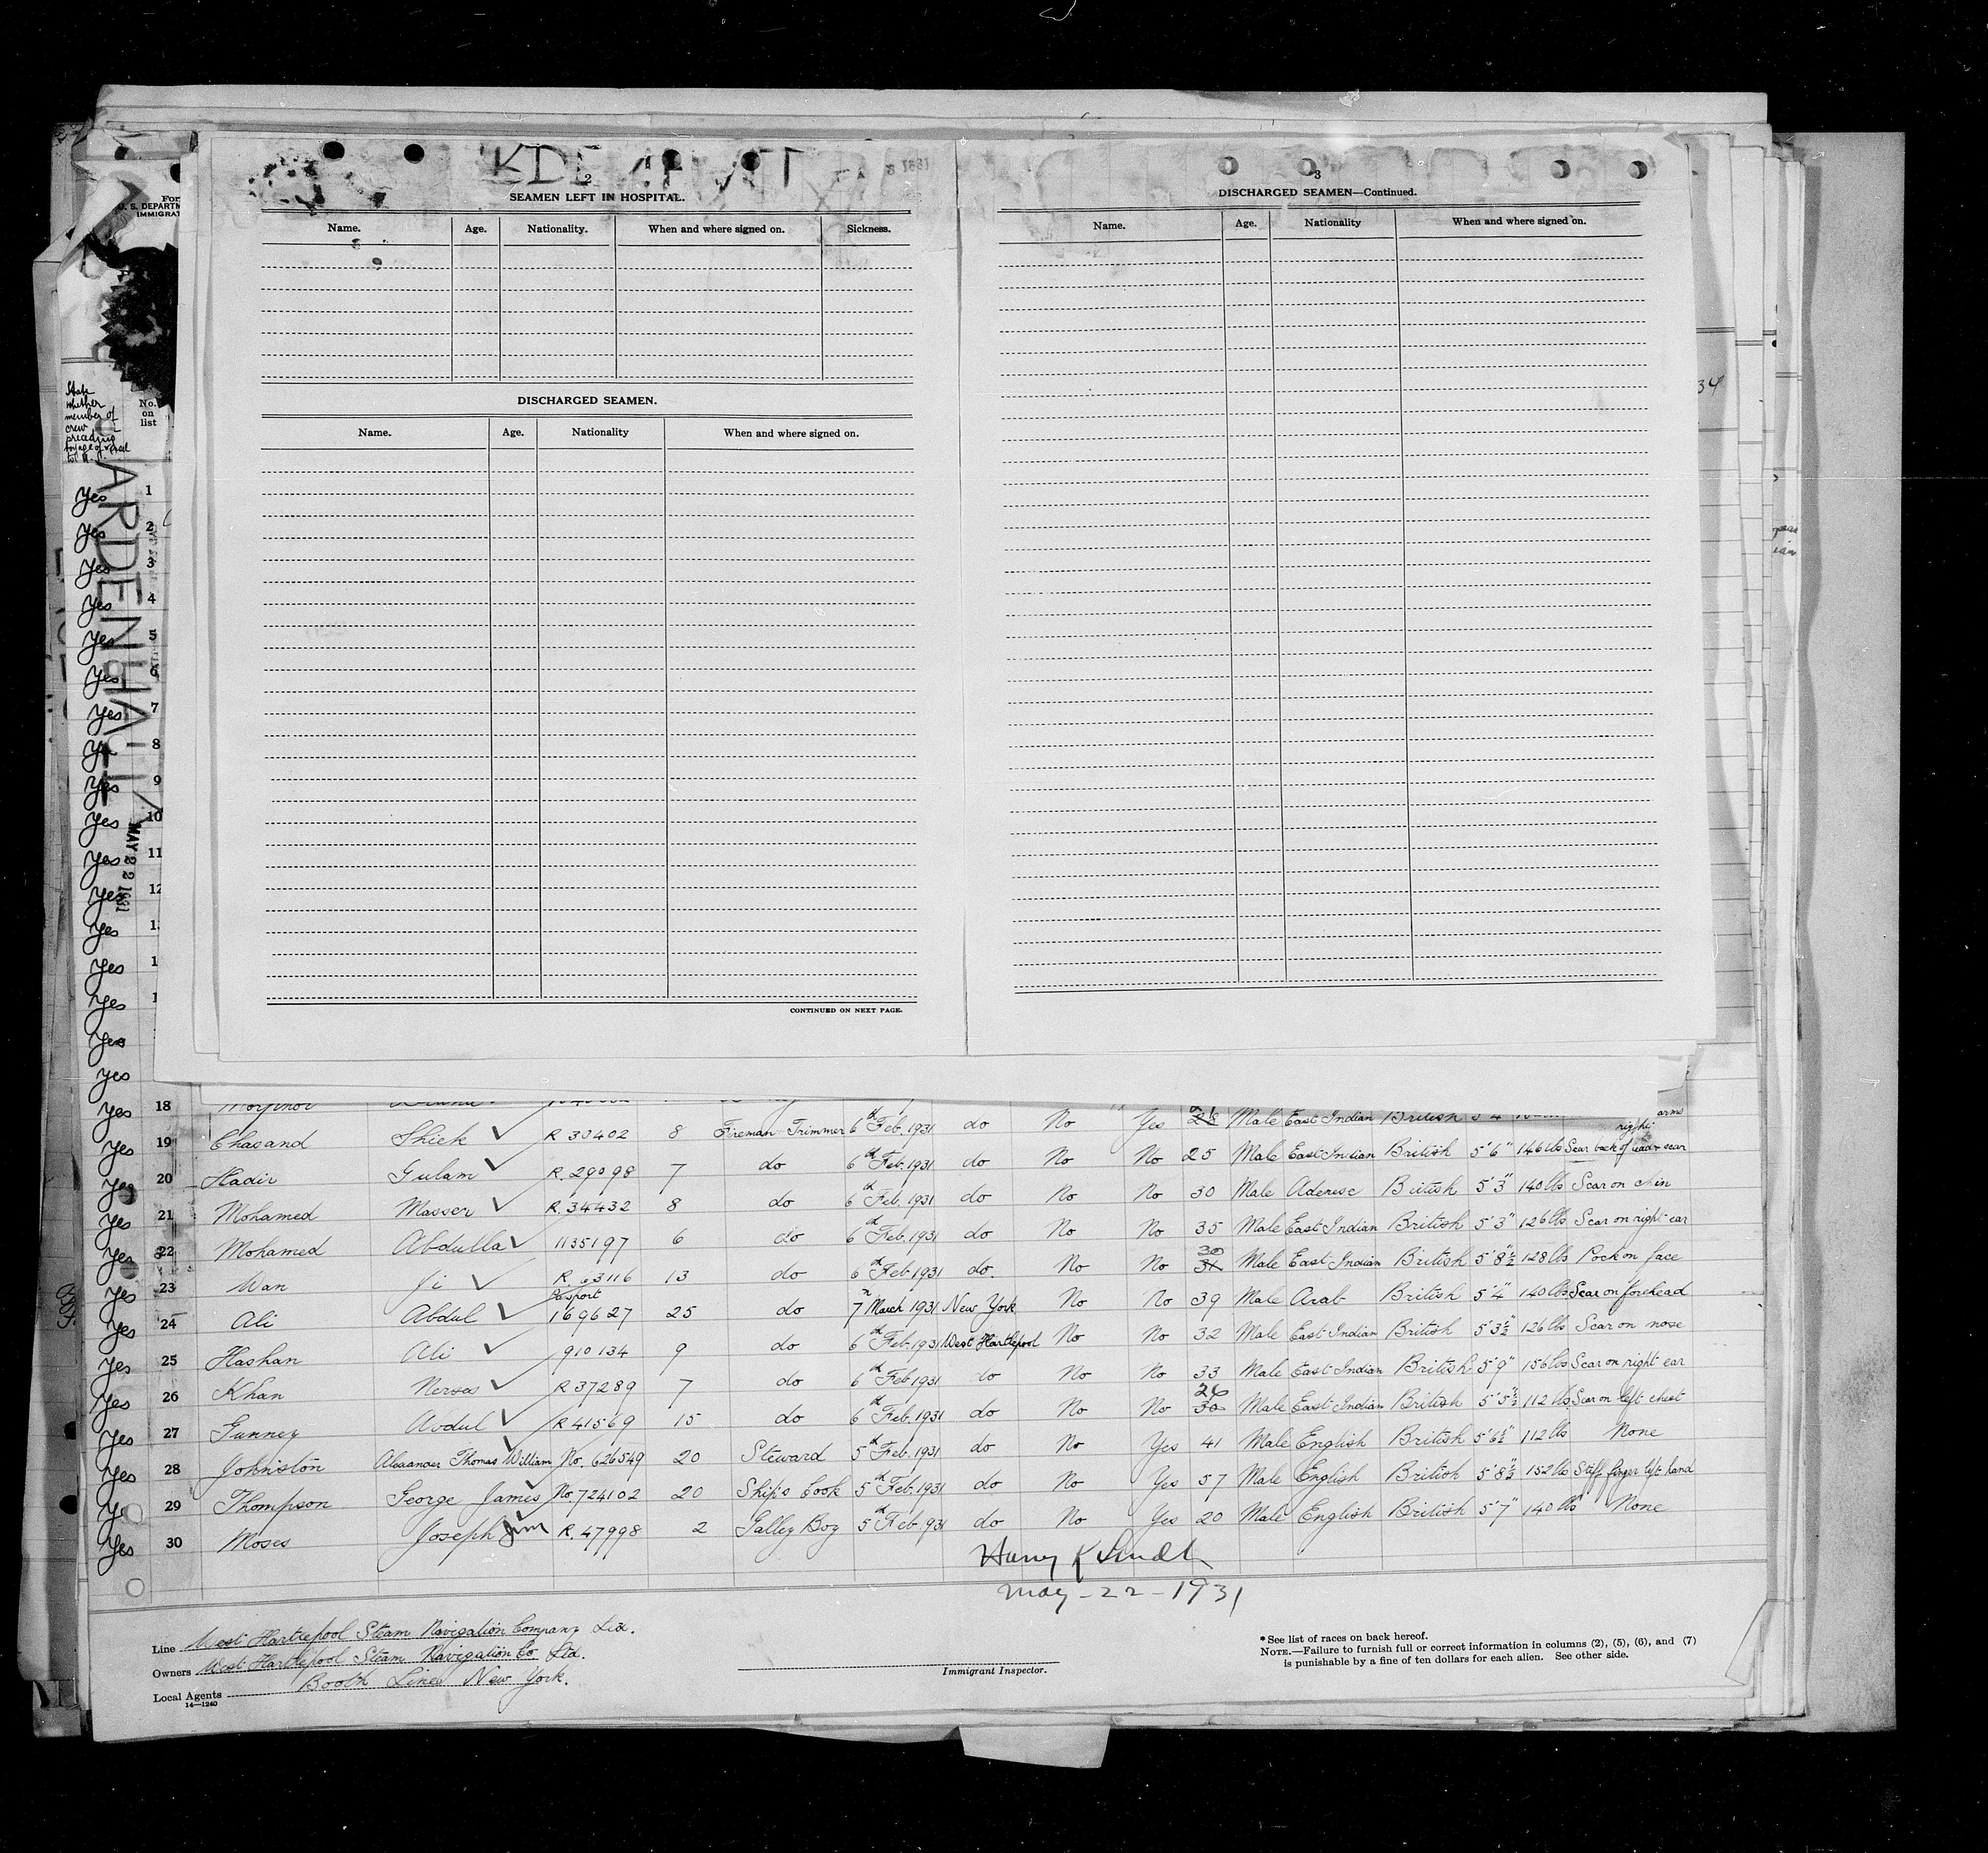 2
SEAMEN LEFT IN HOSPITAL.
Name. Age. Nationality. When and where signed on. Sickness.
DISCHARGED SEAMEN.
Name. Age. Nationality When and where signed on.
CONTINUED ON NEXT PAGE.
3
DISCHARGED SEAMEN—Continued.
Name. Age. Nationality When and where signed on.
34
For
U. S. DEPARTM
IMMIGRAT
State
whether
member of
crew
preceding
voyage of vessel
to U.
No.
on
list
ARDENHALL
MAY 22 1931
Yes 1
Yes 2
Yes 3
Yes 4
Yes 5
Yes 6
Yes 7
Yes 8
Yes 9
Yes 10
Yes 11
Yes 12
Yes 1
Yes 1
Yes 1
Yes
Yes
Yes 18 Yes Male East Indian British 5'4 arms
Yes 19 Chasand Shiek ✓ R 30402 8 Fireman Trimmer 6th Feb. 1931 do No No 25 Male East Indian British 5'6" 146 lbs Scar back of head & scar right
Yes 20 Hadir Gulam ✓ R. 29098 7 do 6th Feb. 1931 do No No 30 Male Adenese British 5'3" 140 lbs Scar on chin
Yes 21 Mohamed Masser ✓ R. 34432 8 do 6th Feb. 1931 do No No 35 Male East Indian British 5'3" 126 lbs Scar on right ear
Yes 22 Mohamed Abdulla ✓ 1135197 6 do 6th Feb. 1931 do No No 30 Male East Indian British 5'8½" 128 lbs Pock on face
Yes 23 Wan Ji ✓ R. 63116 13 do 6th Feb. 1931 do. No No 39 Male Arab British 5'4" 140 lbs Scar on forehead
Yes 24 Ali Abdul ✓ Passport 169627 25 do 7th March 1931 New York No No 32 Male East Indian British 5'3½" 126 lbs Scar on nose
Yes 25 Hashan Ali ✓ 910134 9 do 6th Feb. 1931 West Hartlepool No No 33 Male East Indian British 5'9" 156 lbs Scar on right ear
Yes 26 Khan Neroas ✓ R 37289 7 do 6th Feb 1931 do No No 26 30 Male East Indian British 5'5½" 112 lbs Scar on left chest
Yes 27 Gunney Abdul ✓ R 41569 15 do 6th Feb. 1931 do No Yes 41 Male English British 5'6½" 112 lbs None
Yes 28 Johnston Alexander Thomas William ✓ No. 626549 20 Steward 5th Feb. 1931 do No Yes 57 Male English British 5'8½" 152 lbs Stiff finger left hand
Yes 29 Thompson George James ✓ No 724102 20 Ship's Cook 5th Feb. 1931 do No Yes 20 Male English British 5'7" 140 lbs None
Yes 30 Moses Joseph Jim R. 47998 2 Galley Boy 5th Feb. 931 do No
May-22-1931
Line West Hartlepool Steam Navigation Company Ltd.
Owners West Hartlepool Steam Navigation Co Ltd.
Local Agents Booth Line New York.
14—1240
Immigrant Inspector.
* See list of races on back hereof.
NOTE.—Failure to furnish full or correct information in columns (2), (5), (6), and (7)
is punishable by a fine of ten dollars for each alien. See other side.